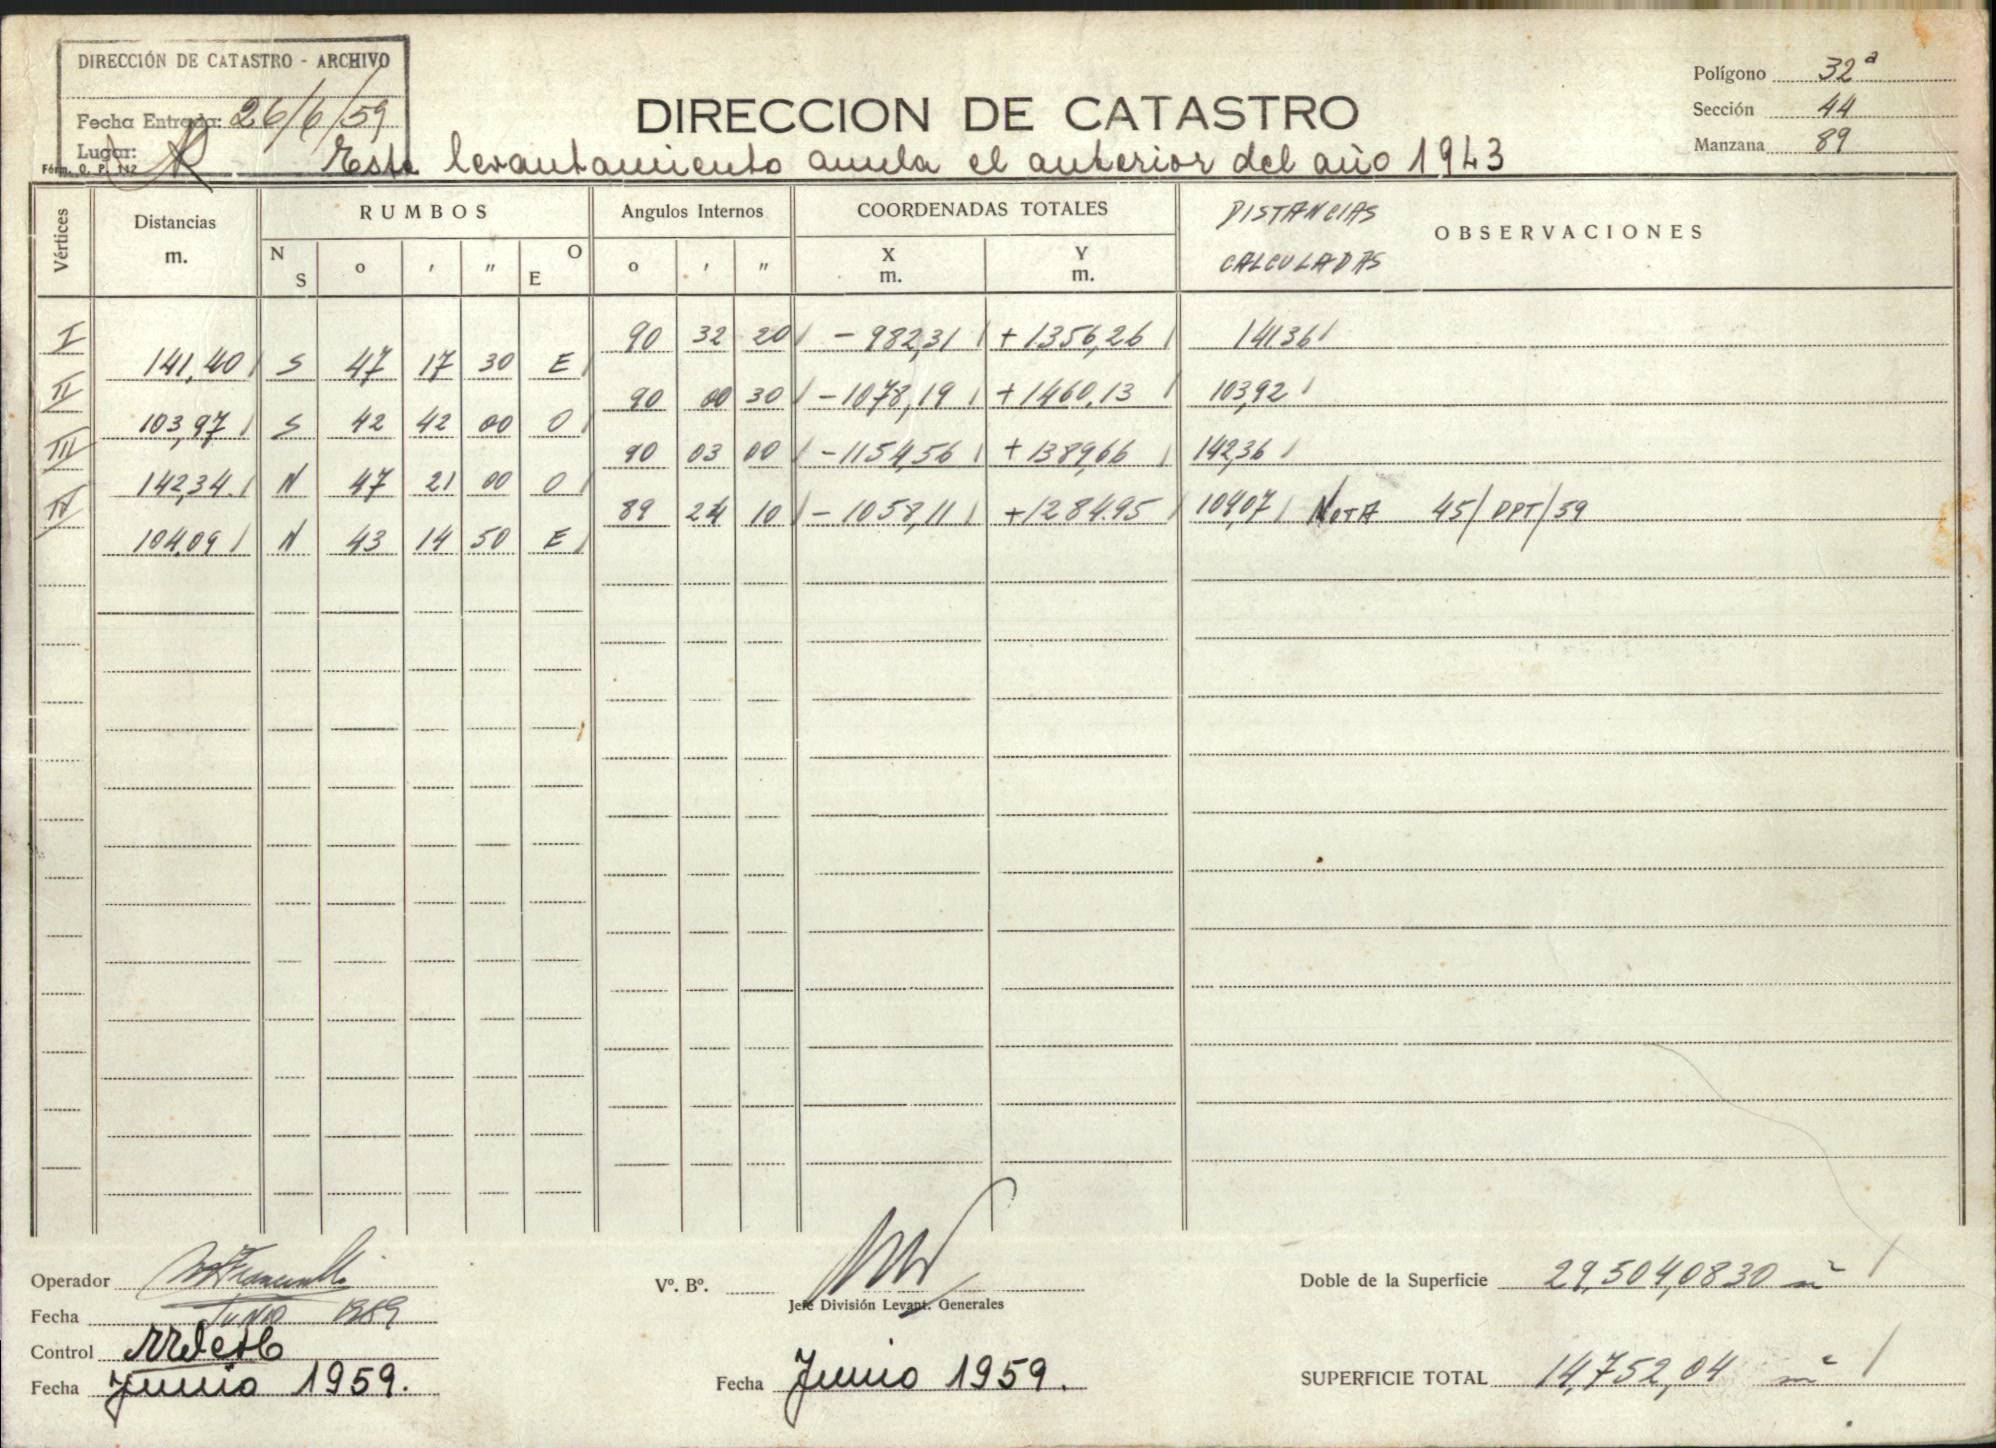 DIRECCIÓN DE CATASTRO - ARCHIVO
Fecha Entrada: 26/6/59
Lugar:
Fórm. C. P. 142
DIRECCION DE CATASTRO
Este levantamiento anula el anterior del año 1943
Polígono 32ª
Sección 44
Manzana 89
Vértices Distancias m. RUMBOS Angulos Internos COORDENADAS TOTALES DISTANCIAS CALCULADAS OBSERVACIONES
N S o ' " O E o ' " X m. Y m.
I 90 32 20 - 982,31 + 1356,26 141,36
141,40 S 47 17 30 E
II 90 00 30 - 1078,19 + 1460,13 103,92
103,97 S 42 42 00 O
III 90 03 00 - 1154,56 + 1389,66 142,36
142,34 N 47 21 00 O
IV 89 24 10 - 1058,11 + 1284.95 104,07 NOTA 45/DPT/59
104,09 N 43 14 50 E
Operador
Fecha Junio 1959
Control
Fecha Junio 1959.
Vº. Bº.
Jefe División Levant. Generales
Fecha Junio 1959.
Doble de la Superficie 29,504,0830 m²
SUPERFICIE TOTAL 14,752,04 m²